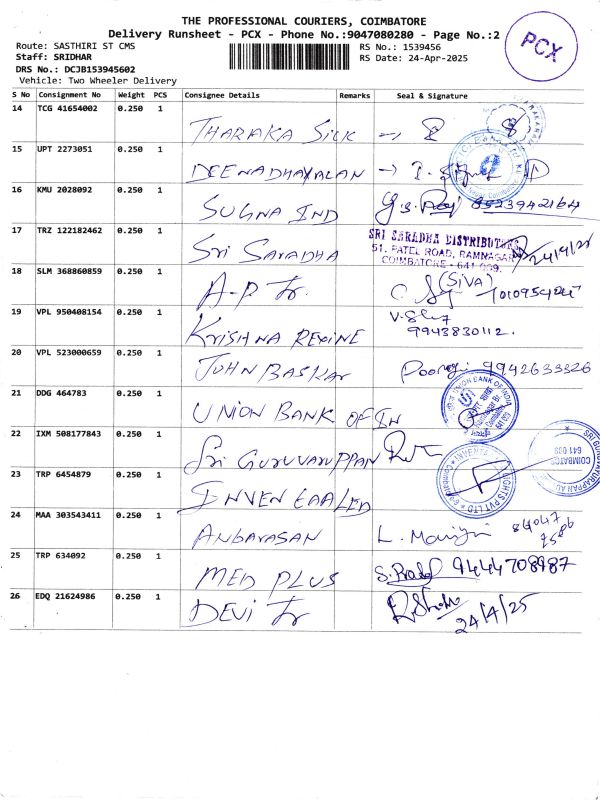 THE PROFESSIONAL COURIERS, COIMBATORE
Delivery Runsheet - PCX - Phone No.:9047080280 - Page No.:2
Route: SASTHIRI ST CMS
RS No.: 1539456
Staff: SRIDHAR
RS Date: 24-Apr-2025
DRS No.: DCJB153945602
Vehicle: Two Wheeler Delivery
PCX
S No Consignment No Weight PCS Consignee Details Remarks Seal & Signature
14 TCG 41654002 0.250 1
THARAKA SILK →
15 UPT 2273051 0.250 1
DEENADHAYALAN →
16 KMU 2028092 0.250 1
SUGNA IND 9523942164
17 TRZ 122182462 0.250 1
Sri SARADHA
SRI SARADHA DISTRIBUTORS
51, PATEL ROAD, RAMNAGAR
COIMBATORE - 641 009.
24/4/25
18 SLM 368860859 0.250 1
A-P Tr. (SIVA)
19 VPL 950408154 0.250 1
KRISHNA REXINE 9943830112.
20 VPL 523000659 0.250 1
JOHN BASKAR 9942633326
21 DDG 464783 0.250 1
UNION BANK OF IN
UNION BANK OF INDIA
22 IXM 508177843 0.250 1
Sri GURUVARUPPAN
COIMBATORE
641 009
23 TRP 6454879 0.250 1
INVENTAA LED
24 MAA 303543411 0.250 1
ANBARASAN L. 84047
25 TRP 634092 0.250 1
MED PLUS 9444708987
26 EDQ 21624986 0.250 1
DEVI Tr 24/4/25